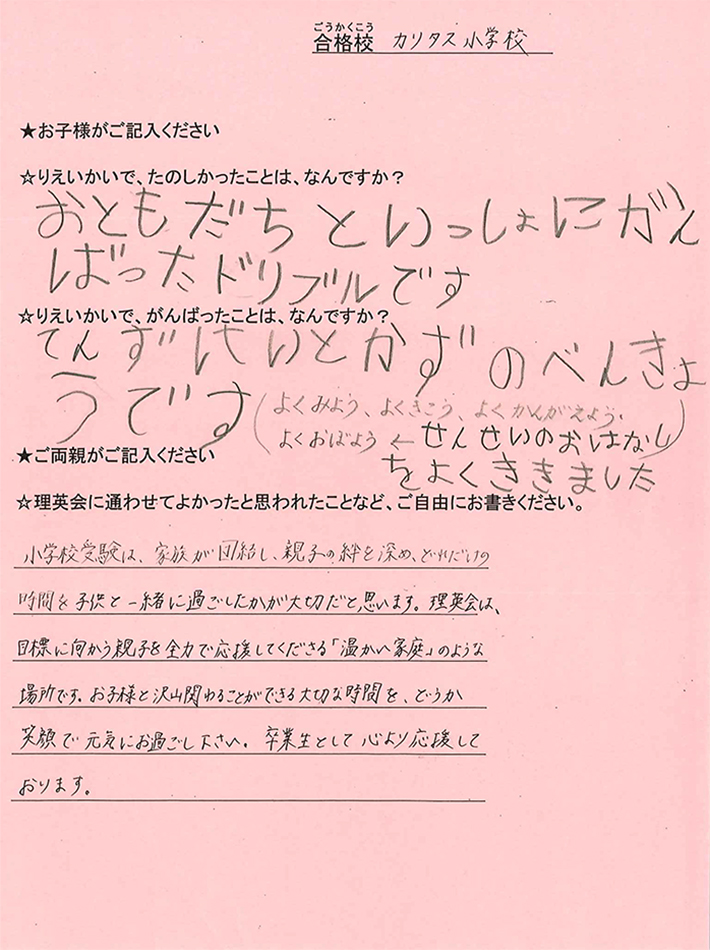 ごうかくこう
合格校 カリタス小学校
★お子様がご記入ください
☆りえいかいで、たのしかったことは、なんですか？
おともだちといっしょにがん
ばったドリブルです
☆りえいかいで、がんばったことは、なんですか？
てんずけいとかずのべんきょ
うです
(よくみよう、よくきこう、よくかんがえよう、
よくおぼよう ← せんせいのおはなし)
をよくききました
★ご両親がご記入ください
☆理英会に通わせてよかったと思われたことなど、ご自由にお書きください。
小学校受験は、家族が団結し、親子の絆を深め、どれだけの
時間を子供と一緒に過ごしたかが大切だと思います。理英会は、
目標に向かう親子を全力で応援してくださる「温かい家庭」のような
場所です。お子様と沢山関わることができる大切な時間を、どうか
笑顔で元気にお過ごし下さい。卒業生として心より応援して
おります。